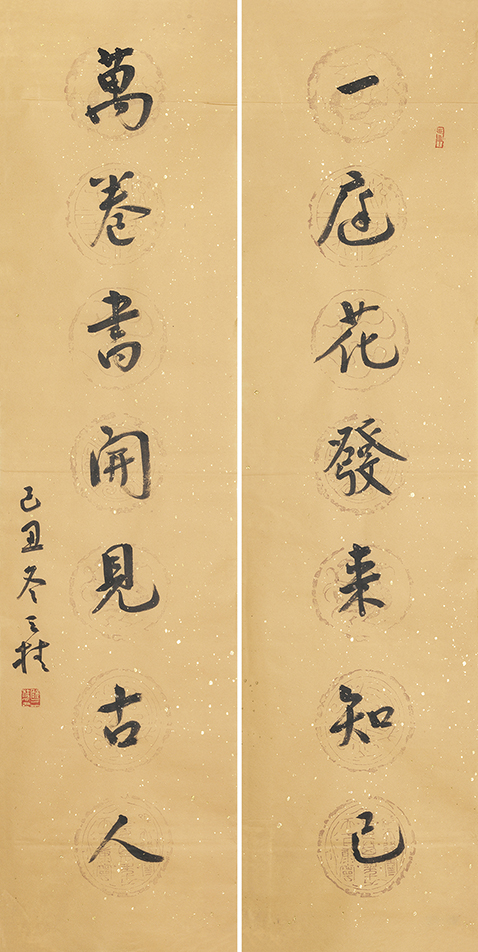 一庭花發来知己
萬卷書開見古人
己丑冬